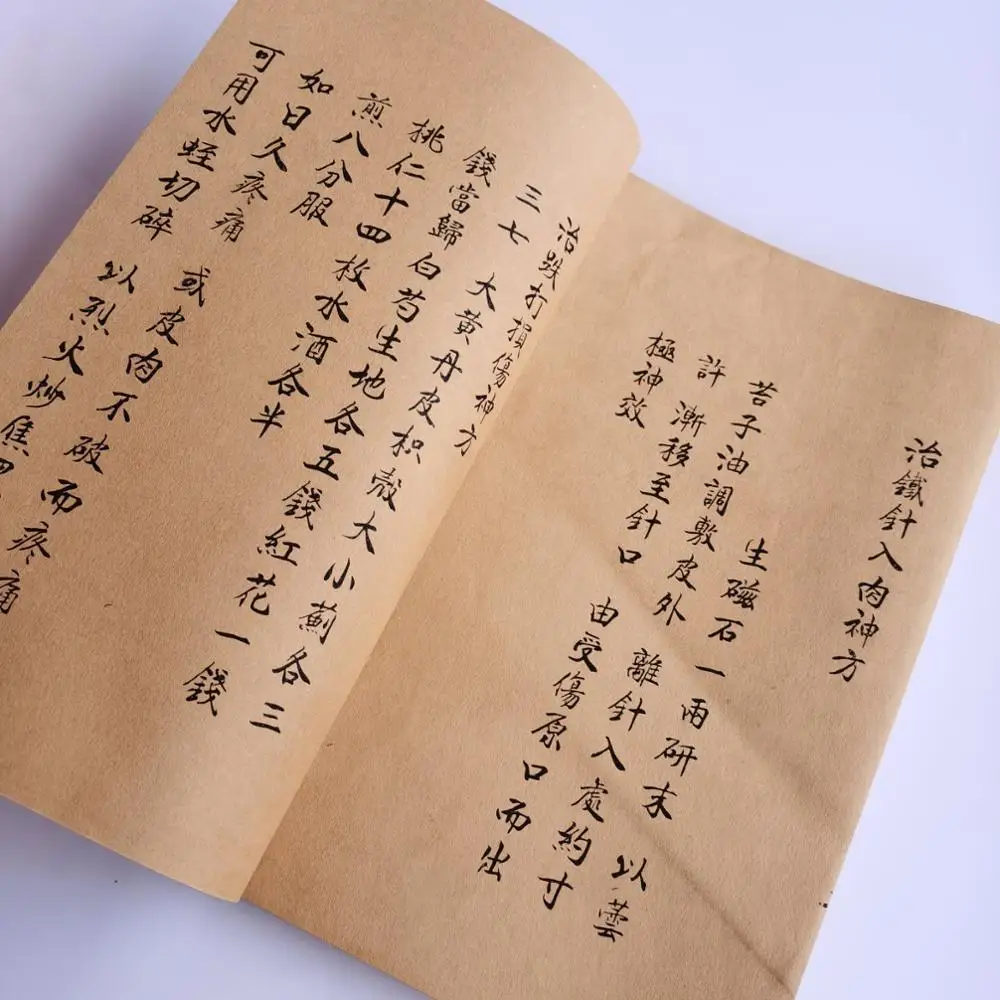 治鐵針入肉神方
生磁石一兩研末 以蕓
苔子油調敷皮外 離針入處約寸
許 漸移至針口 由受傷原口而出
極神效
治跌打損傷神方
三七 大黃丹皮枳殼大小薊各三
錢當歸白芍生地各五錢紅花一錢
桃仁十四枚水酒各半
煎八分服
如日久疼痛 或皮肉不破而疼痛
可用水蛭切碎 以烈火炒焦